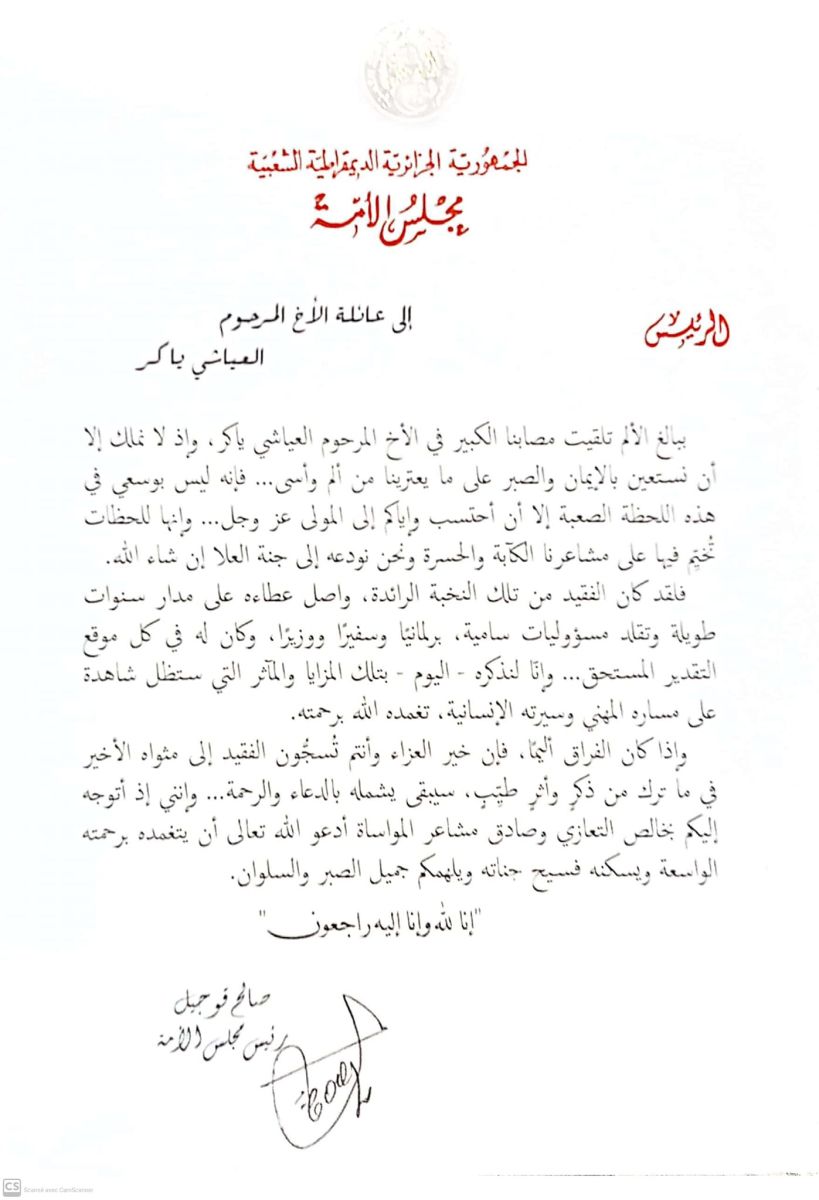 الجمهورية الجزائرية الديمقراطية الشعبية
مجلس الأمة
الرئيس
إلى عائلة الأخ المرحوم
العياشي ياكر
ببالغ الألم تلقيت مصابنا الكبير في الأخ المرحوم العياشي ياكر، وإذ لا نملك إلا
أن نستعين بالإيمان والصبر على ما يعترينا من ألم وأسى... فإنه ليس بوسعي في
هذه اللحظة الصعبة إلا أن أحتسب وإياكم إلى المولى عز وجل... وإنها للحظات
تُخيِّم فيها على مشاعرنا الكآبة والحسرة ونحن نودعه إلى جنة العلا إن شاء الله.
فلقد كان الفقيد من تلك النخبة الرائدة، واصل عطاءه على مدار سنوات
طويلة وتقلد مسؤوليات سامية، برلمانيًا وسفيرًا ووزيرًا، وكان له في كل موقع
التقدير المستحق... وإنّا لنذكره - اليوم - بتلك المزايا والمآثر التي ستظل شاهدة
على مساره المهني وسيرته الإنسانية، تغمده الله برحمته.
وإذا كان الفراق أليمًا، فإن خير العزاء وأنتم تُسجُّون الفقيد إلى مثواه الأخير
في ما ترك من ذكرٍ وأثرٍ طيّبٍ، سيبقى يشمله بالدعاء والرحمة... وإنني إذ أتوجه
إليكم بخالص التعازي وصادق مشاعر المواساة أدعو الله تعالى أن يتغمده برحمته
الواسعة ويسكنه فسيح جناته ويلهمكم جميل الصبر والسلوان.
"إنا لله وإنا إليه راجعون"
صالح قوجيل
رئيس مجلس الأمة
CS Scanné avec CamScanner